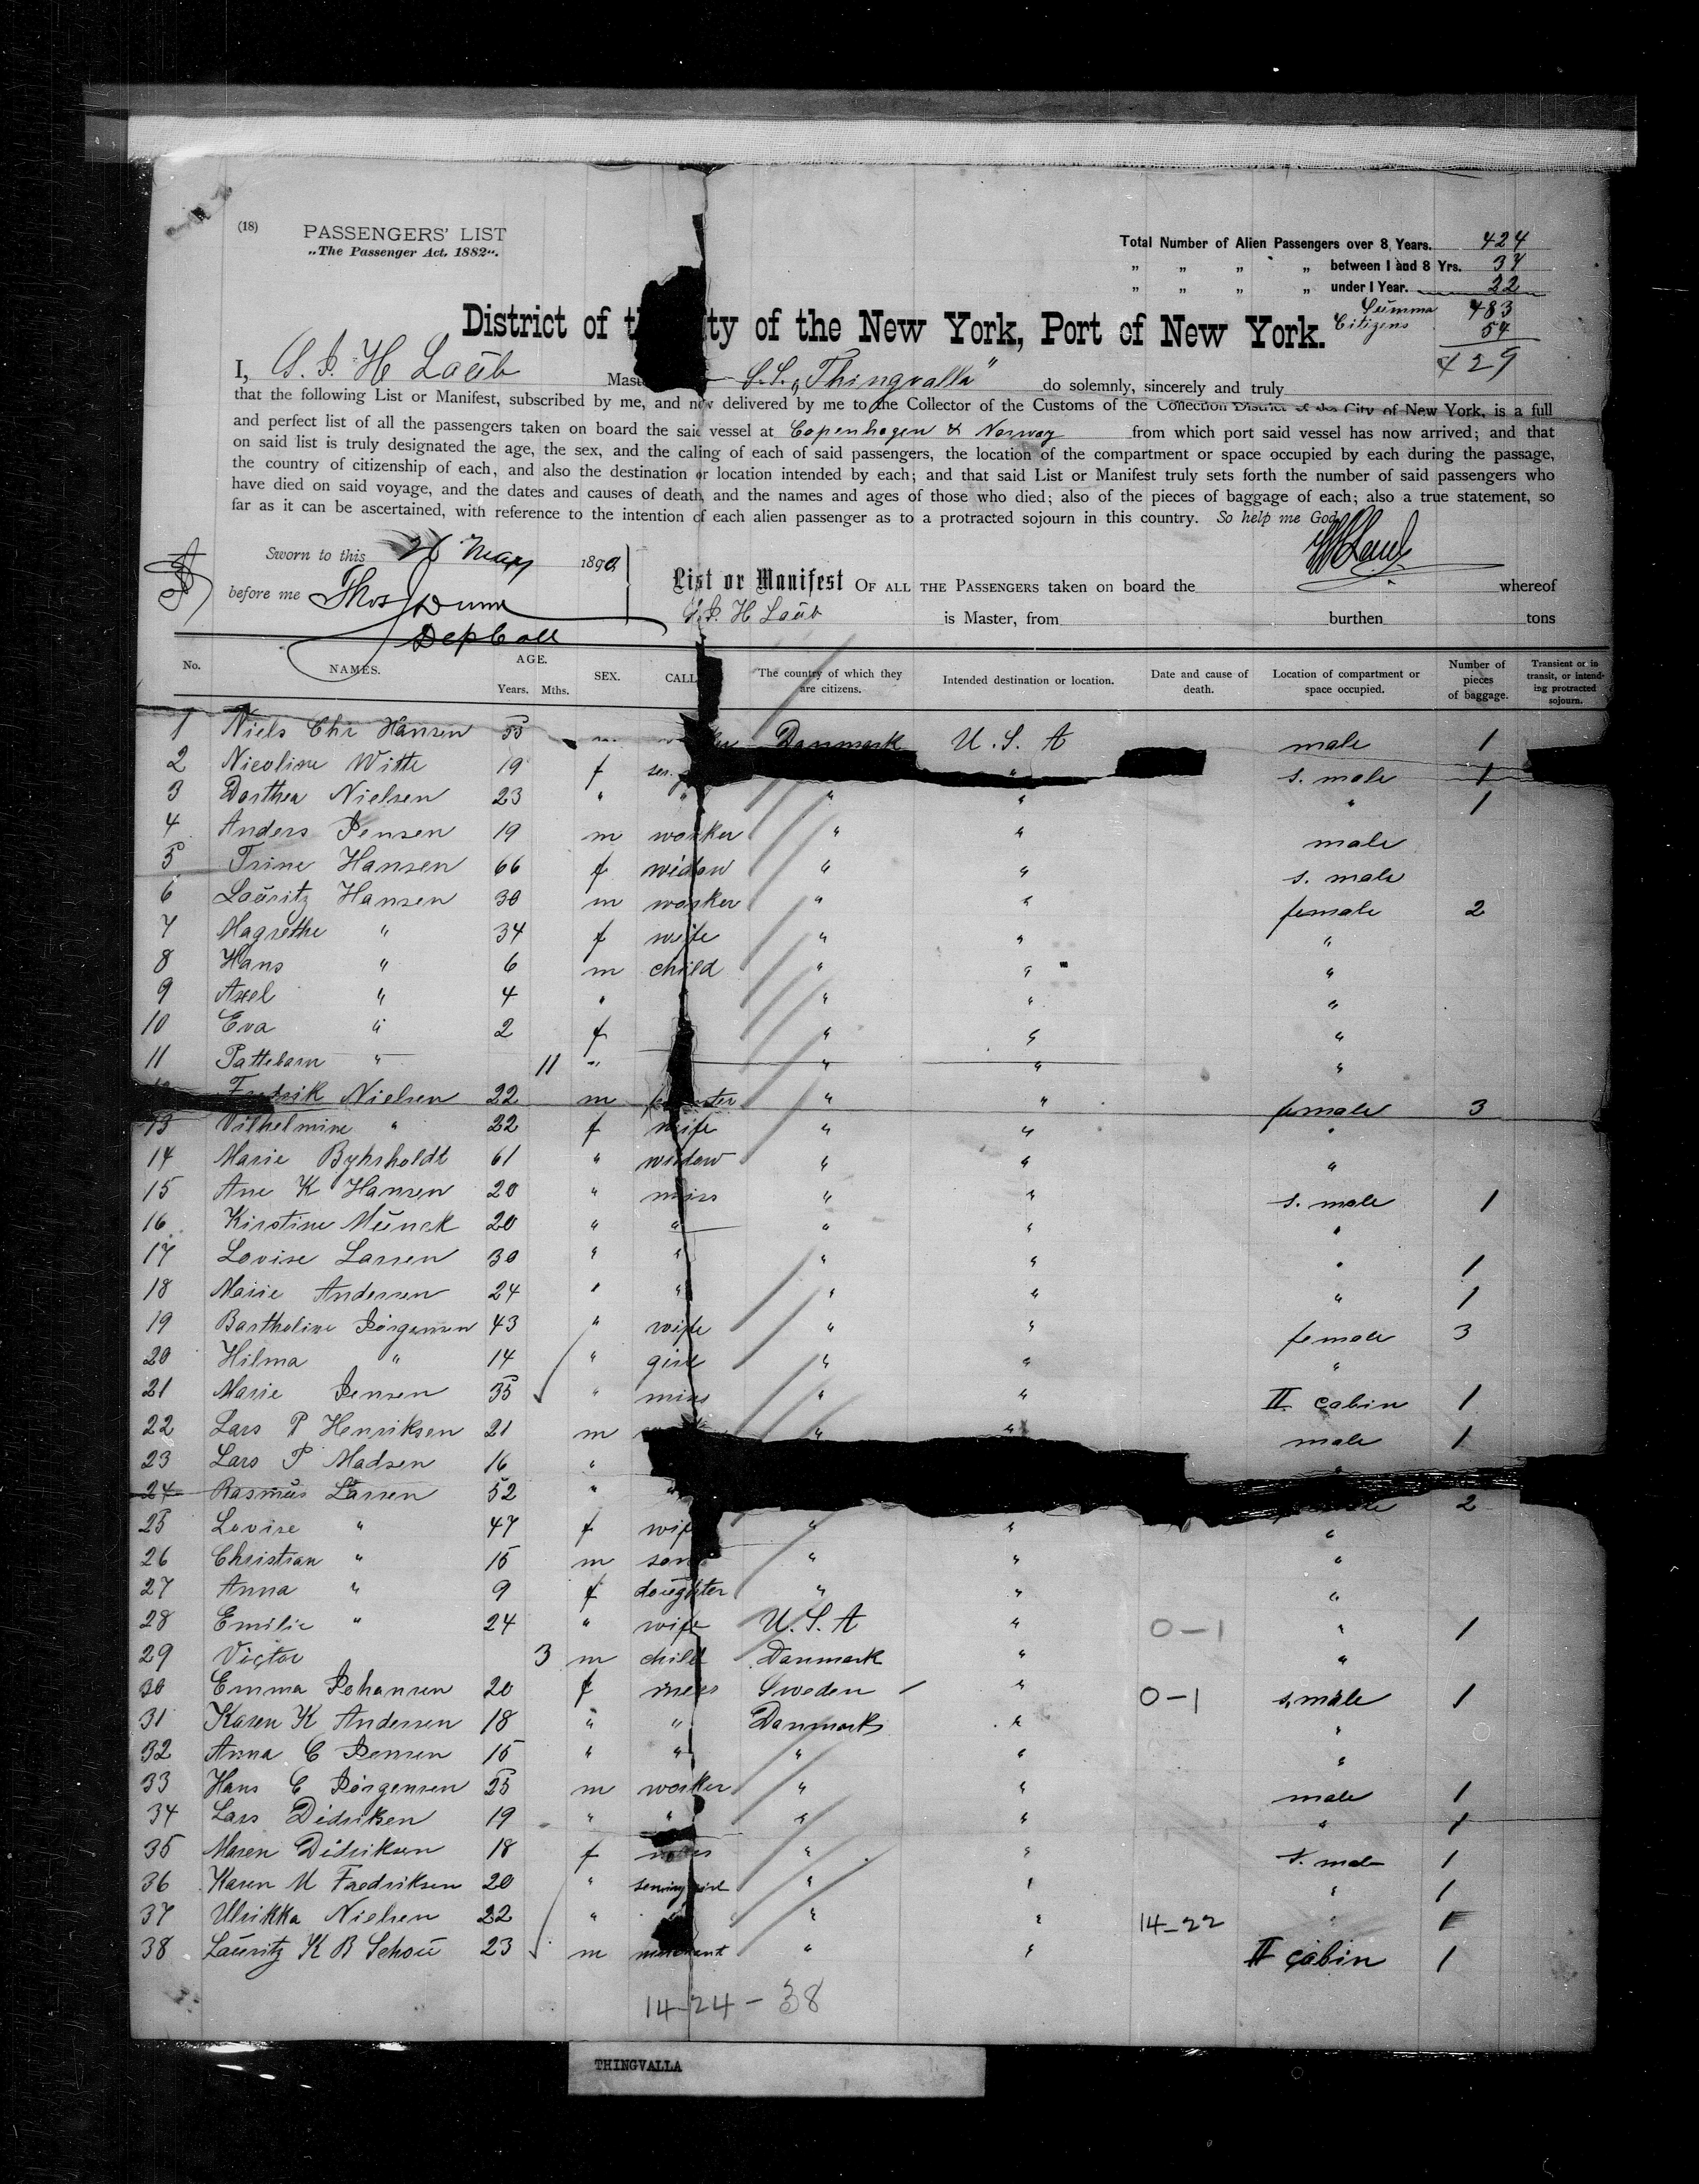 (18)
PASSENGERS' LIST
„The Passenger Act, 1882“.
Total Number of Alien Passengers over 8 Years. 424
„ „ „ „ between 1 and 8 Yrs. 37
„ „ „ „ under 1 Year. 22
Summa 483
Citizens 54
429
District of t ty of the New York, Port of New York.
I, G. J. H Laūb Mast S.S. „Thingvalla” do solemnly, sincerely and truly
that the following List or Manifest, subscribed by me, and now delivered by me to the Collector of the Customs of the Collection District of the City of New York, is a full
and perfect list of all the passengers taken on board the said vessel at Copenhagen & Norway from which port said vessel has now arrived; and that
on said list is truly designated the age, the sex, and the caling of each of said passengers, the location of the compartment or space occupied by each during the passage,
the country of citizenship of each, and also the destination or location intended by each; and that said List or Manifest truly sets forth the number of said passengers who
have died on said voyage, and the dates and causes of death, and the names and ages of those who died; also of the pieces of baggage of each; also a true statement, so
far as it can be ascertained, with reference to the intention of each alien passenger as to a protracted sojourn in this country. So help me God
Sworn to this 26 May 1890
before me Thos Dunn
Dep Coll
List or Manifest OF ALL THE PASSENGERS taken on board the whereof
G. J. H Laūb is Master, from burthen tons
No. NAMES. AGE. Years. Mths. SEX. CALL The country of which they are citizens. Intended destination or location. Date and cause of death. Location of compartment or space occupied. Number of pieces of baggage. Transient or in transit, or intending protracted sojourn.
1 Niels Chr Hansen 55 m Danmark U. S. A male 1
2 Nicoline Witte 19 f ser. " s. male 1
3 Dorthea Nielsen 23 " " " " " 1
4 Anders Jensen 19 m worker " " male
5 Trine Hansen 66 f widow " " s. male
6 Laūritz Hansen 30 m worker " " female 2
7 Magrethe " 34 f wife " " "
8 Hans " 6 m child " " "
9 Axel " 4 " " " "
10 Eva " 2 f " " "
11 Pattebarn " 11 " " " "
Fredrik Nielsen 22 m " " female 3
13 Vilhelmine " 22 f wife " " "
14 Marie Byhrholdt 61 " widow " " "
15 Ane K Hansen 20 " miss " " s. male 1
16 Kirstine Mūnck 20 " " " " "
17 Lovise Larsen 30 " " " " " 1
18 Marie Andersen 24 " " " " " 1
19 Bartholine Jørgensen 43 " wife " " female 3
20 Hilma " 14 " girl " " "
21 Marie Jensen 35 " miss " " II cabin 1
22 Lars P Henriksen 21 m " " male 1
23 Lars P Madsen 16 " "
24 Rasmūs Larsen 52 " 2
25 Lovise " 47 f wife " " "
26 Christian " 15 m son " " "
27 Anna " 9 f daūghter " " "
28 Emilie " 24 " wife U. S. A " 0-1 " 1
29 Victor 3 m child Danmark " "
30 Emma Johansen 20 f miss Sweden " 0-1 s. male 1
31 Karen K Andersen 18 " " Danmark " "
32 Anna C Jensen 15 " " " " "
33 Hans C Jørgensen 25 m worker " " male 1
34 Lars Didriksen 19 " " " " " 1
35 Maren Didriksen 18 f miss " " s. male 1
36 Karen M Fredriksen 20 " serving girl " " " 1
37 Ulrikka Nielsen 22 " " " 14-22 " 1
38 Laūritz K B Schoū 23 m merchant " " II cabin 1
14-24-38
THINGVALLA